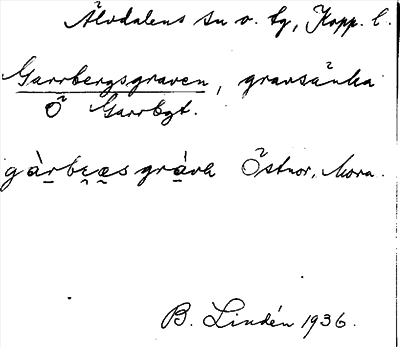 Älvdalens sn o. tg, Kopp. l.
Garrbergsgraven, gravsänka
Ö Garrbgt.
gàrbęæsgràvα Östnor, Mora.
B. Lindén 1936.